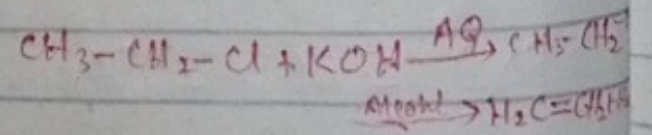 CH3-CH2-Cl + KOH AQ → CH3-CH2-
Alcohol → H2C=CH2+H